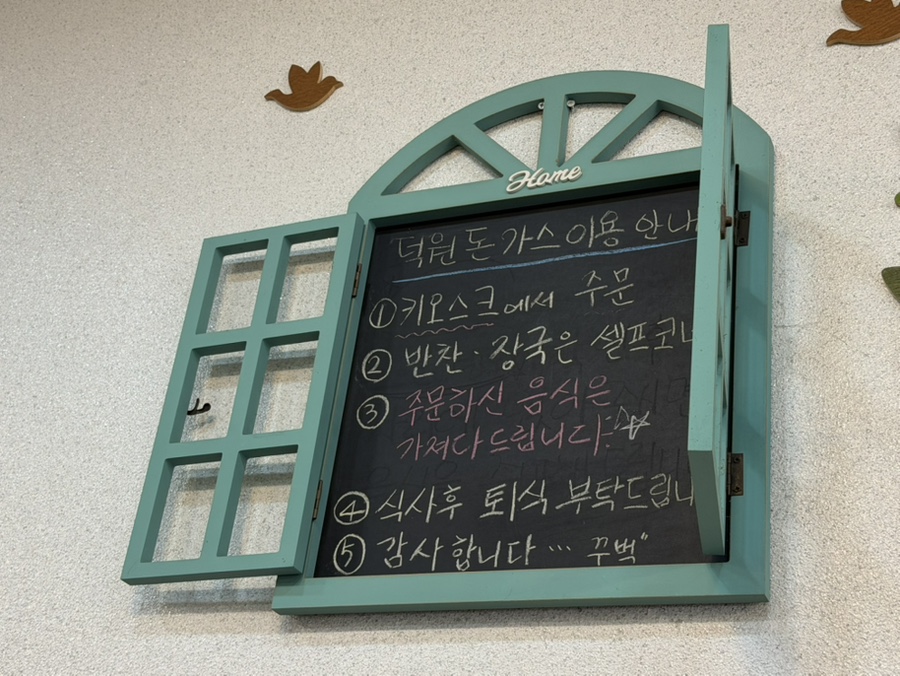 Home
덕원 돈가스 이용 안내
① 키오스크에서 주문
② 반찬 · 장국은 셀프코너
③ 주문하신 음식은
가져다 드립니다
④ 식사후 퇴식 부탁드립니
⑤ 감사합니다 … 꾸벅"